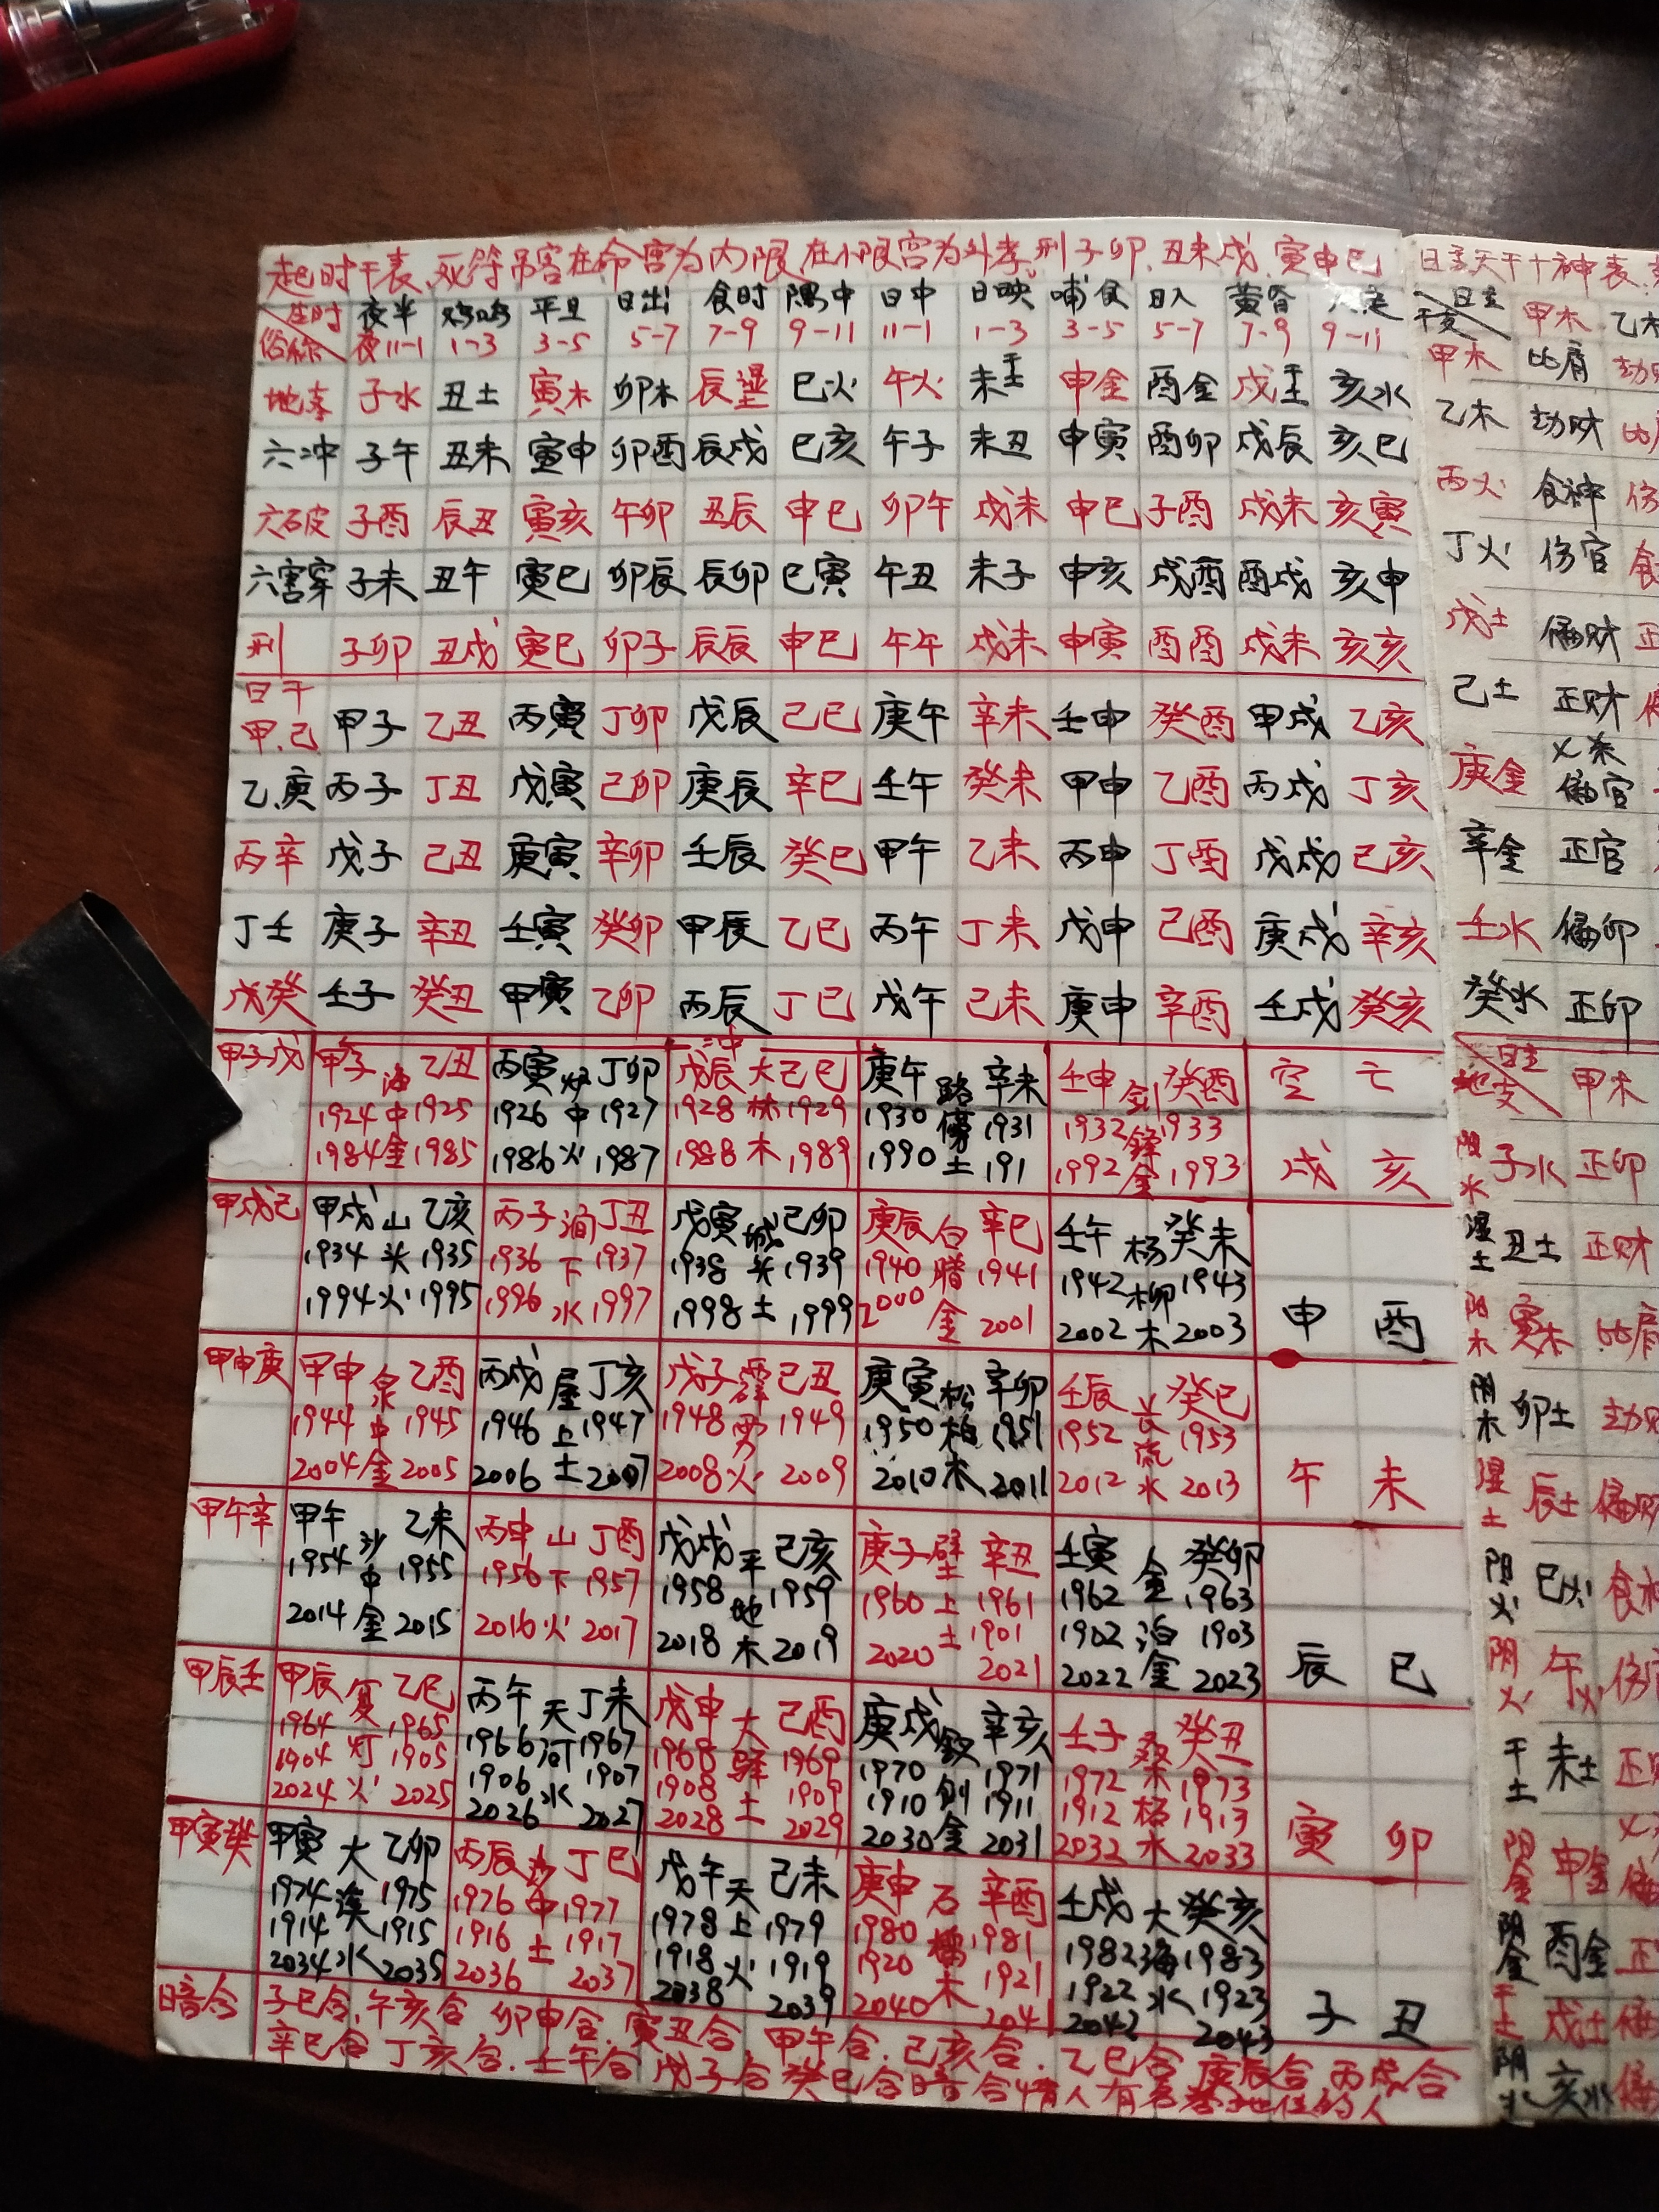 起时干表、死符吊客在命宫为内限、在小限宫为外孝、刑子卯、丑未戌、寅申巳
生时 夜半 鸡鸣 平旦 日出 食时 隅中 日中 日映 哺食 日入 黄昏 人定
俗称 夜11-1 1-3 3-5 5-7 7-9 9-11 11-1 1-3 3-5 5-7 7-9 9-11
地支 子水 丑土 寅木 卯木 辰湿土 巳火 午火 未干土 申金 酉金 戌干土 亥水
六冲 子午 丑未 寅申 卯酉 辰戌 巳亥 午子 未丑 申寅 酉卯 戌辰 亥巳
六破 子酉 辰丑 寅亥 午卯 丑辰 申巳 卯午 戌未 申巳 子酉 戌未 亥寅
六害穿 子未 丑午 寅巳 卯辰 辰卯 巳寅 午丑 未子 申亥 戌酉 酉戌 亥申
刑 子卯 丑戌 寅巳 卯子 辰辰 申巳 午午 戌未 申寅 酉酉 戌未 亥亥
日干
甲.己 甲子 乙丑 丙寅 丁卯 戊辰 己巳 庚午 辛未 壬申 癸酉 甲戌 乙亥
乙.庚 丙子 丁丑 戊寅 己卯 庚辰 辛巳 壬午 癸未 甲申 乙酉 丙戌 丁亥
丙辛 戊子 己丑 庚寅 辛卯 壬辰 癸巳 甲午 乙未 丙申 丁酉 戊戌 己亥
丁壬 庚子 辛丑 壬寅 癸卯 甲辰 乙巳 丙午 丁未 戊申 己酉 庚戌 辛亥
戊癸 壬子 癸丑 甲寅 乙卯 丙辰 丁巳 戊午 己未 庚申 辛酉 壬戌 癸亥
冲
甲子戊 甲子 海 乙丑 丙寅 炉 丁卯 戊辰 大 己巳 庚午 路 辛未 壬申 剑 癸酉 空 亡
1924 中 1925 1926 中 1927 1928 林 1929 1930 傍 1931 1932 锋 1933
1984 金 1985 1986 火 1987 1988 木 1989 1990 土 191 1992 金 1993 戌 亥
甲戌己 甲戌 山 乙亥 丙子 涧 丁丑 戊寅 城 己卯 庚辰 白 辛巳 壬午 杨 癸未
1934 头 1935 1936 下 1937 1938 头 1939 1940 腊 1941 1942 柳 1943
1994 火 1995 1996 水 1997 1998 土 1999 2000 金 2001 2002 木 2003 申 酉
甲申庚 甲申 泉 乙酉 丙戌 屋 丁亥 戊子 霹 己丑 庚寅 松 辛卯 壬辰 长 癸巳
1944 中 1945 1946 上 1947 1948 雳 1949 1950 柏 1951 1952 流 1953
2004 金 2005 2006 土 2007 2008 火 2009 2010 木 2011 2012 水 2013 午 未
甲午辛 甲午 沙 乙未 丙申 山 丁酉 戊戌 平 己亥 庚子 壁 辛丑 壬寅 金 癸卯
1954 中 1955 1956 下 1957 1958 地 1959 1960 上 1961 1962 泊 1963
2014 金 2015 2016 火 2017 2018 木 2019 2020 土 1901 2021 1902 1903
2022 金 2023 辰 巳
甲辰壬 甲辰 复 乙巳 丙午 天 丁未 戊申 大 己酉 庚戌 钗 辛亥 壬子 桑 癸丑
1964 灯 1965 1966 河 1967 1968 驿 1969 1970 钊 1971 1972 1973
1904 1905 1906 1907 1908 1909 1910 1911 1912 杨 1913
2024 火 2025 2026 水 2027 2028 土 2029 2030 金 2031 2032 水 2033 寅 卯
甲寅癸 甲寅 大 乙卯 丙辰 沙 丁巳 戊午 天 己未 庚申 石 辛酉 壬戌 大 癸亥
1974 溪 1975 1976 中 1977 1978 上 1979 1980 榴 1981 1982 海 1983
1914 1915 1916 土 1917 1918 火 1919 1920 木 1921 1922 水 1923
2034 水 2035 2036 2037 2038 2039 2040 204 2042 2043 子 丑
暗合 子巳合、午亥合、卯申合、寅丑合、甲午合、己亥合、乙巳合、庚辰合、丙戌合
辛巳合 丁亥合、壬午合 戊子合 癸巳合暗合情人有名地位的人
日主天干十神表
日主
干支 甲木 乙木
甲木 比肩 劫财
乙木 劫财 比肩
丙火 食神 伤
丁火 伤官 食
戊土 偏财 正
己土 正财 偏
庚金 七杀 偏官
辛金 正官
壬水 偏卯
癸水 正卯
日主
地支 甲木
阴水 子水 正卯
湿土 丑土 正财
阳木 寅木 比肩
阴木 卯土 劫财
湿土 辰土 偏财
阳火 巳火 食神
阴火 午火 伤官
干土 未土 正财
阳金 申金 偏
阴金 酉金 正
干土 戌土 偏
阴水 亥水 偏